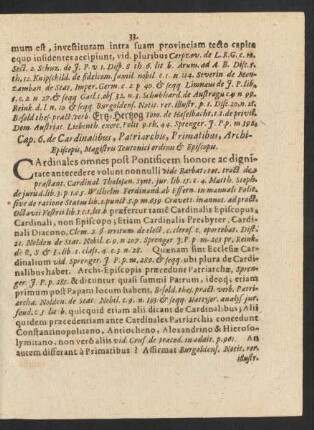 33.
mum est, investituram intra suam provinciam tecto capite
equo insidentes accipiunt, vid. pluribus Carpzov. de L. R. G. c. 12.
Sect. 2. Schuz. de J. P. v 1. Diss. 8. th. 6. lit b. Arum. ad A. B. Disc. 5.
th, 12. Knipschild. de fideicom. famil nobil. c. 1. n 114. Severin de Mon-
zamban de Stat. Imper. Germ. c. 2 p 40. & seqq Limnaus de J. P. lib.
5. c. 2. n 27 & seqq
Reink. d. l. n 10. & seqq. Burgoldens. Notit. rer. illustr. p. 1. Disc. 20. n. 21.
Besold thes. pract: verb. Ertz-Hertzog Tom. de
Dem. Austriac Liebenth. exerc. Polit 8 pag 44. Sprenger. J. P. p m
Cap. 6. de Cardinalibus, Patriarchis, Primatibus, Archi-
Episcopis, Magistris Teutonici ordinis & Episcopis.
CArdinales omnes post Pontificem honore ac digni-
tate antecedere volunt nonnulli vide Barbat: rat. tract. de
præstant, Cardinal
de jurad. lib. 3. p 145 Wilhelm Ferdinand. ab Effern. in manuali Politic
sive de ratione Status lib 2. punct 2. p. m 459
Octavii Vestrii lib
Cardinali, non Episcopo; Etiam Cardinalis Presbyter, Cardi-
nali Diacono,
21. Nolden de Stat. Nobil. c. 9. n 207. Sprenger J. P. p m 203 pr. Reink-
dit R, S & E. lib 1. class 3. c. 2. n 28. Quænam sint Ecclesiæ Car-
dinalium vid. Sprenger. J. P p m. 289. & seqq. ubi plura de Cardi-
nalibus habet. Archi-Episcopis præcedunt Patriarchæ, Spren-
ger. J. P pp 287. & dicuntur quasi summi Patrum, ideoq; etiam
primum post Papam locum habent. Besold. thes. pract: verb. Patri-
archa. Nolden. de Stat. Nobil. c. 9. n. 183. & seqq
feud. c. 1 lit b. quicquid etiam alii dicant de Cardinalibus, Alii
quidem præcedentiam ante Cardinales Patriarchis concedunt
Constantinopolitano, Antiocheno, Alexandrino & Hieroso-
lymitano, non verò aliis vid. Crus. de præced. in addit. p. 961. An
autem differant à Primatibus? Affirmat Burgoldens. Notit. rer.
illustr.